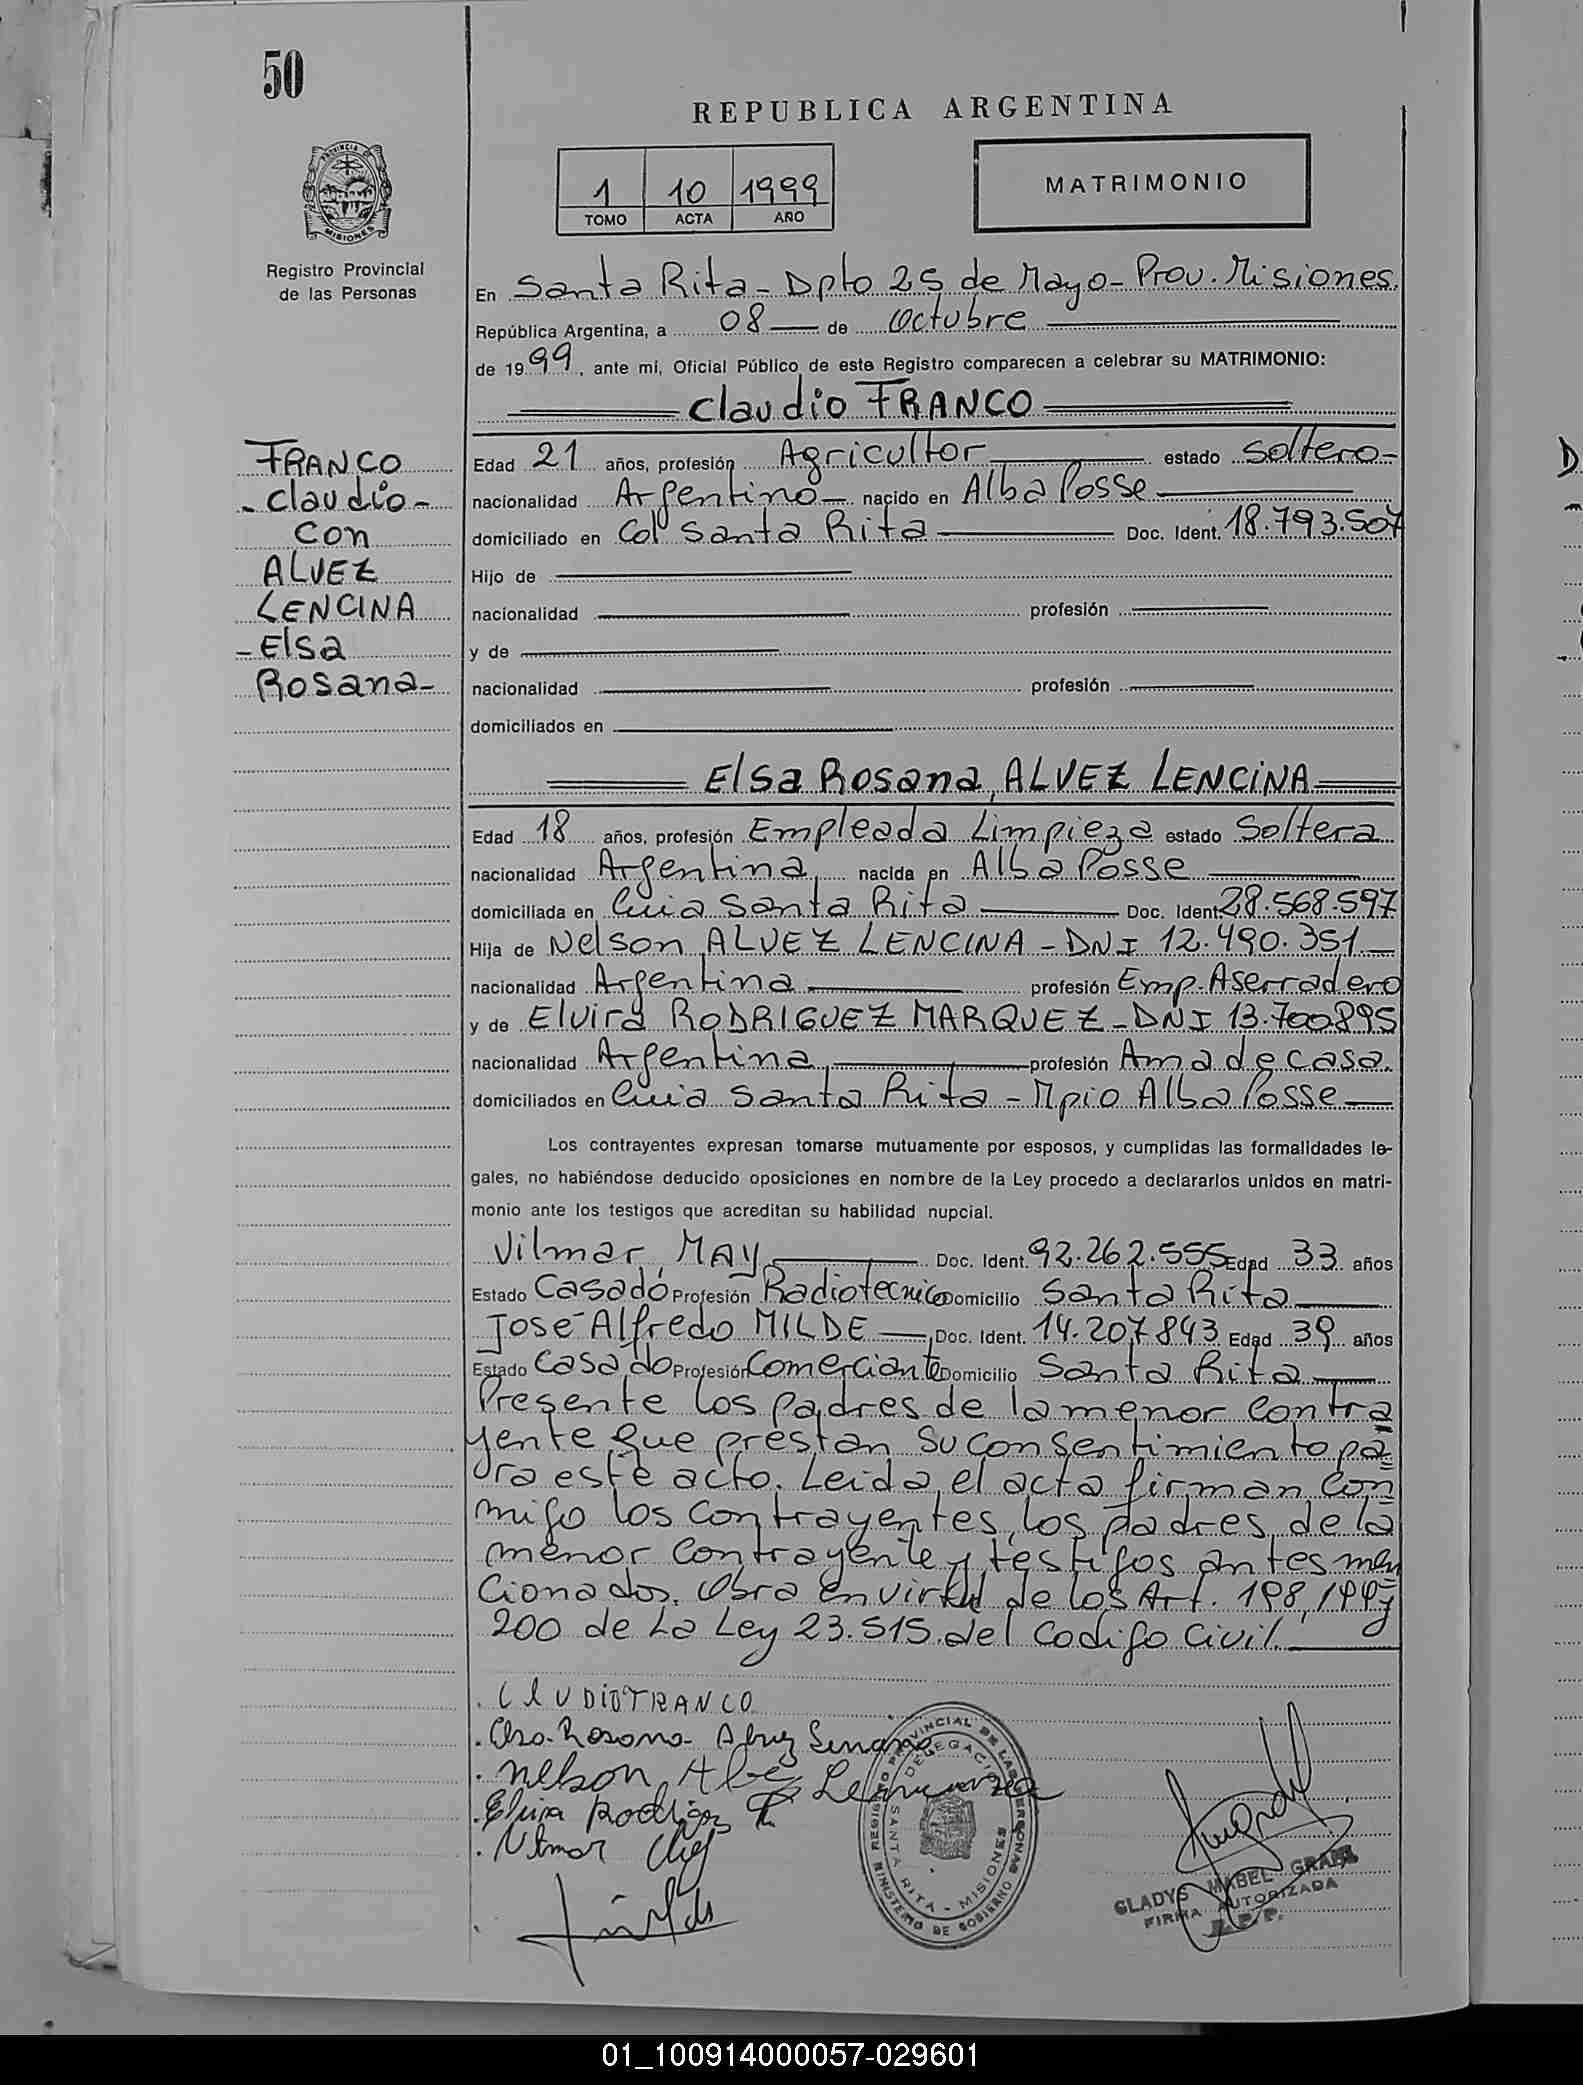 50
REPUBLICA ARGENTINA
PROVINCIA DE MISIONES
1 10 1999
TOMO ACTA AÑO
MATRIMONIO
Registro Provincial
de las Personas
En Santa Rita - Dpto 25 de Mayo - Prov. Misiones.
República Argentina, a 08 de Octubre
de 1999, ante mí, Oficial Público de este Registro comparecen a celebrar su MATRIMONIO:
Claudio FRANCO
FRANCO
- Claudio -
Con
ALVEZ
LENCINA
- Elsa
Rosana -
Edad 21 años, profesión Agricultor estado Soltero -
nacionalidad Argentino nacido en Alba Posse
domiciliado en Col Santa Rita Doc. Ident. 18.793.507
Hijo de
nacionalidad profesión
y de
nacionalidad profesión
domiciliados en
Elsa Rosana ALVEZ LENCINA
Edad 18 años, profesión Empleada Limpieza estado Soltera
nacionalidad Argentina nacida en Alba Posse
domiciliada en Santa Rita Doc. Ident. 28.568.597
Hija de Nelson ALVEZ LENCINA - DNI 12.490.351.
nacionalidad Argentina profesión Emp. Aserradero
y de Elvira RODRIGUEZ MARQUEZ - DNI 13.700895
nacionalidad Argentina profesión Ama de casa.
domiciliados en Santa Rita - Mpio Alba Posse
Los contrayentes expresan tomarse mutuamente por esposos, y cumplidas las formalidades le-
gales, no habiéndose deducido oposiciones en nombre de la Ley procedo a declararlos unidos en matri-
monio ante los testigos que acreditan su habilidad nupcial.
Vilmar MAY Doc. Ident. 92.262.555 Edad 33 años
Estado Casado Profesión Radiotecnico Domicilio Santa Rita
José Alfredo MILDE Doc. Ident. 14.207.843 Edad 39 años
Estado Casado Profesión Comerciante Domicilio Santa Rita
Presente los padres de la menor contra
yente que prestan su consentimiento pa
ra este acto. Leida el acta firman con
migo los contrayentes, los padres de la
menor contrayente y testigos antes men
cionados. Obra en virtud de los Art. 198, 199 y
200 de La Ley 23.515 del Codigo Civil.
Nelson
Elvira Rodrigz
Vilmar
REGISTRO PROVINCIAL DE LAS PERSONAS
DELEGACION
SANTA RITA - MISIONES
MINISTERIO DE GOBIERNO
GLADYS MABEL
FIRMA AUTORIZADA
01_100914000057-029601